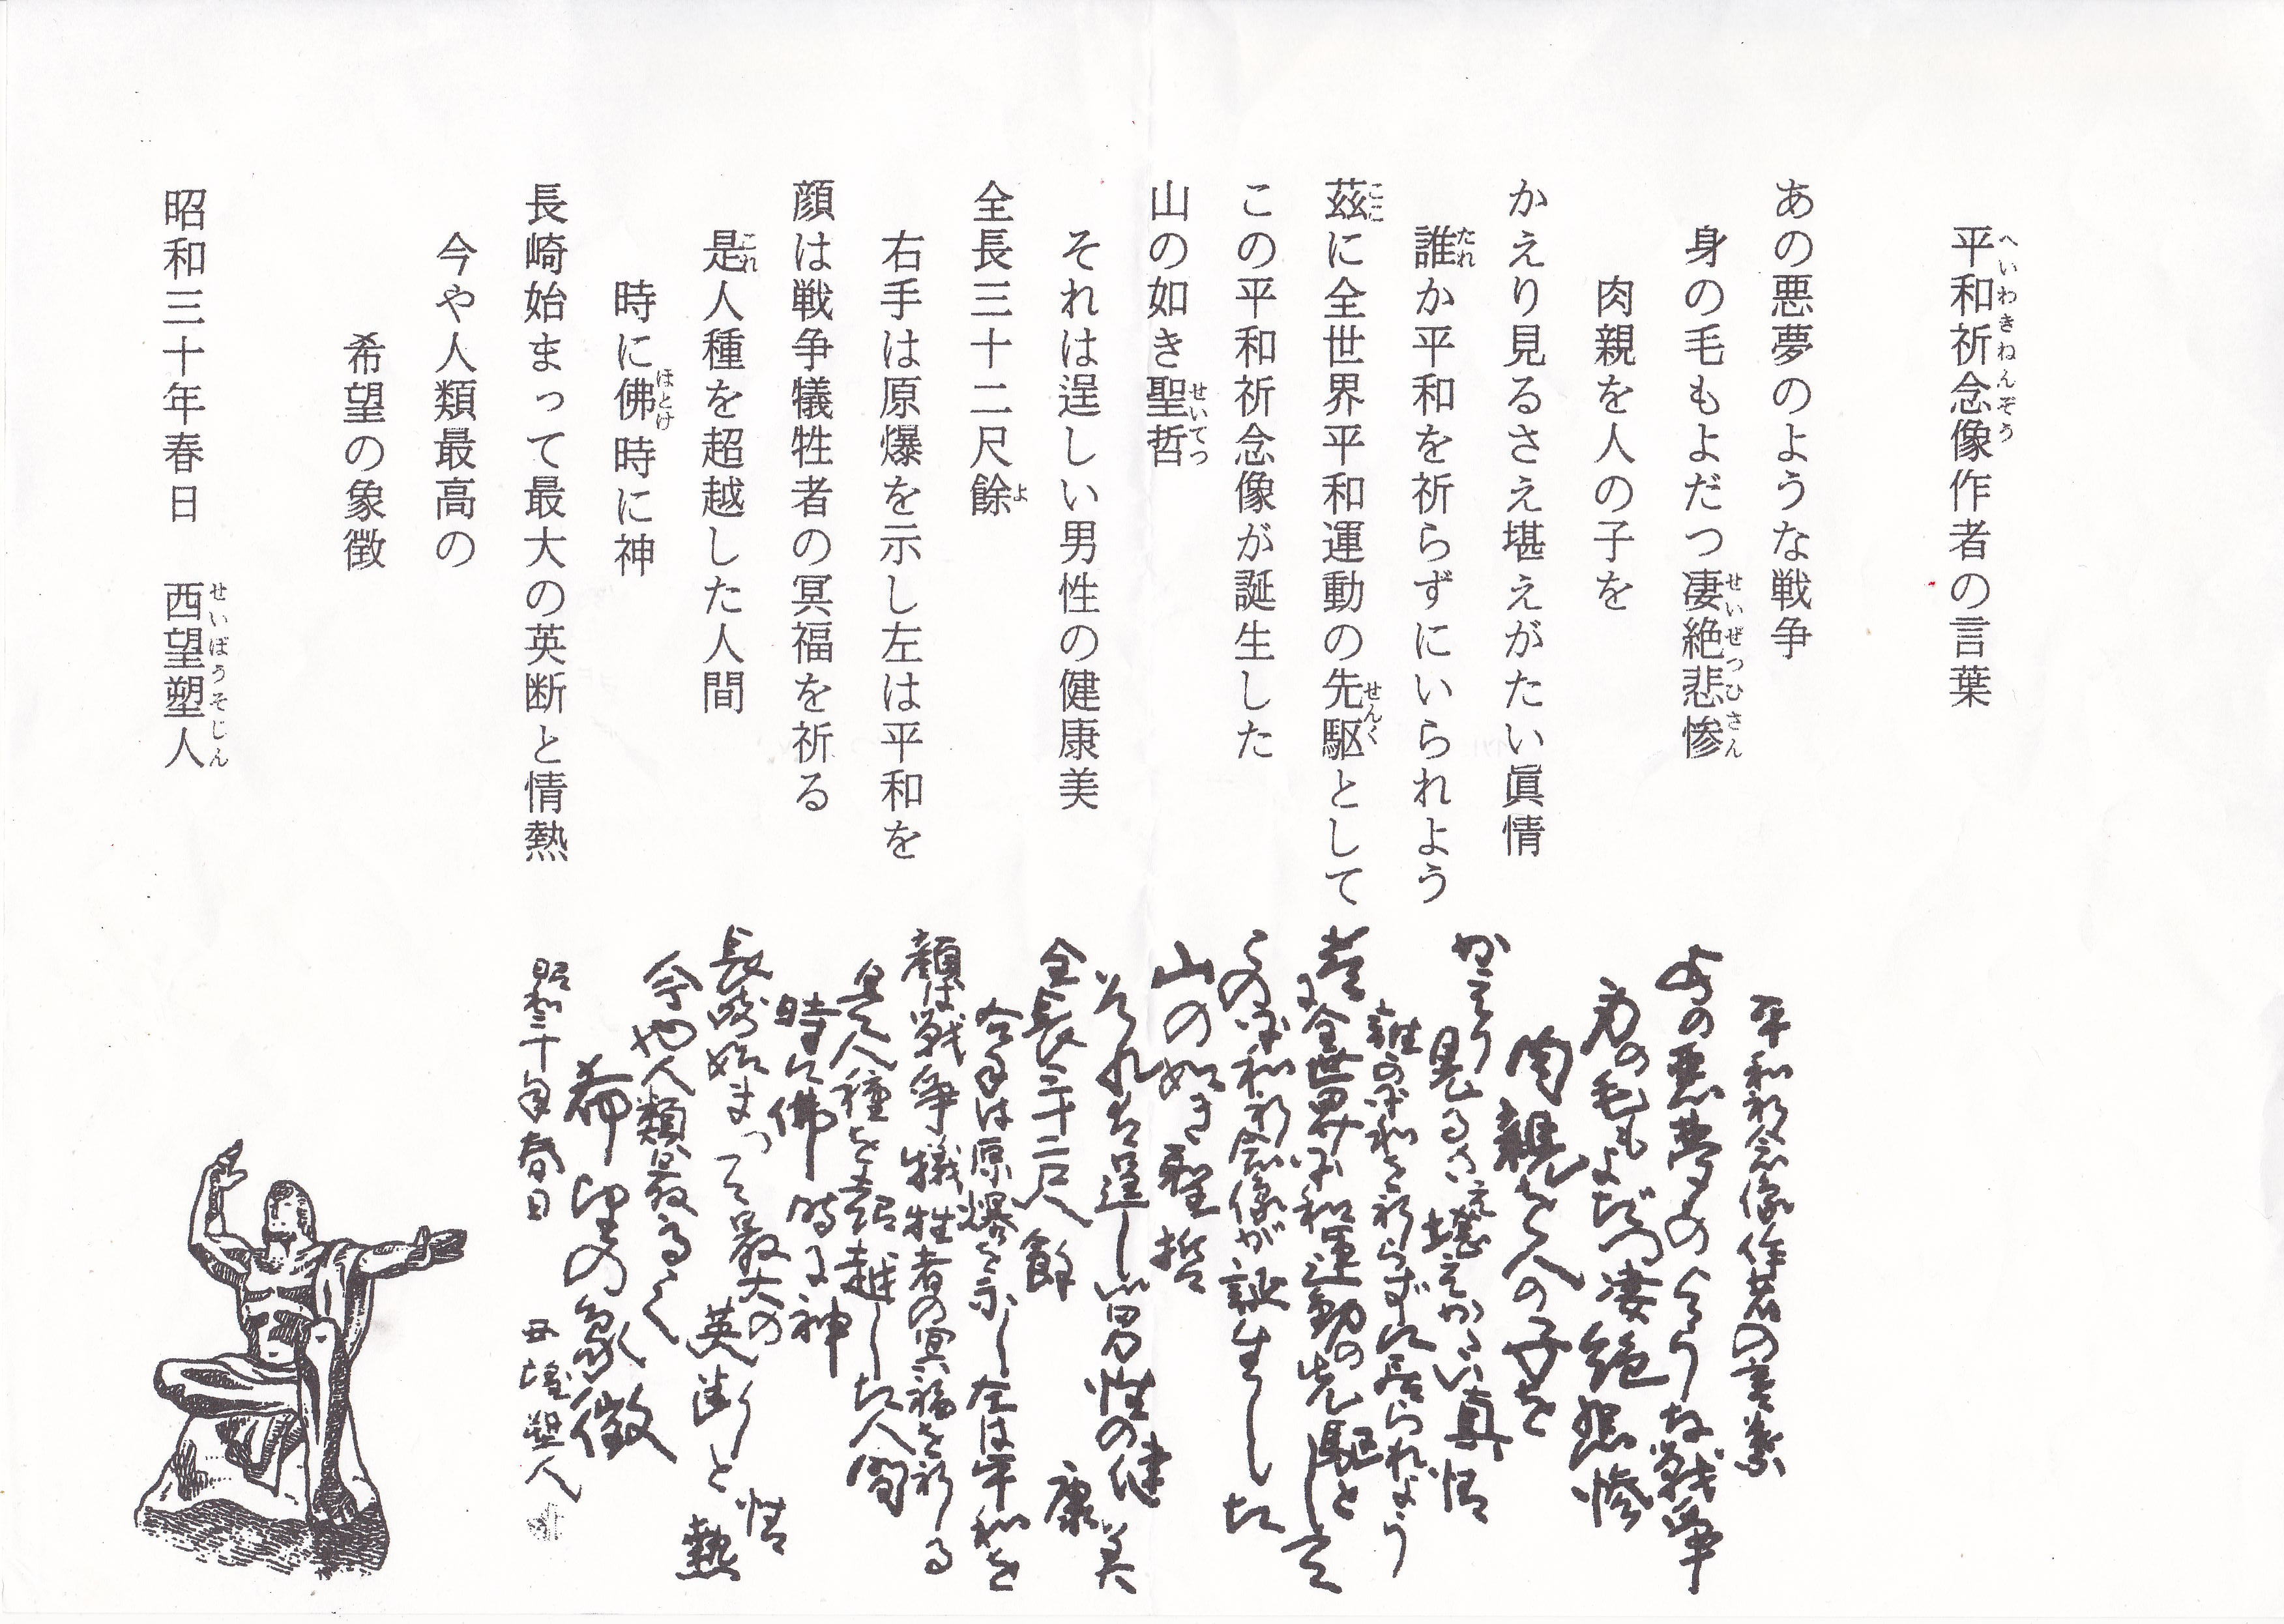 平和祈念像作者の言葉
へいわきねんぞう
あの悪夢のような戦争
身の毛もよだつ凄絶悲惨
せいぜつひさん
肉親を人の子を
かえり見るさえ堪えがたい眞情
誰か平和を祈らずにいられよう
たれ
茲に全世界平和運動の先駆として
ここ
せんく
この平和祈念像が誕生した
山の如き聖哲
せいてつ
それは逞しい男性の健康美
全長三十二尺餘
よ
右手は原爆を示し左は平和を
顔は戦争犠牲者の冥福を祈る
是人種を超越した人間
これ
時に佛時に神
ほとけ
長崎始まって最大の英断と情熱
今や人類最高の
希望の象徴
昭和三十年春日 西望塑人
せいぼうそじん
平和祈念像作者の言葉
あの悪夢のような戦争
身の毛もよだつ凄絶悲惨
肉親を人の子を
かえり見るさえ堪えがたい真情
誰か平和を祈らずに居られよう
茲に全世界平和運動の先駆として
この平和祈念像が誕生した
山の如き聖哲
それは逞しい男性の健康美
全長三十二尺餘
右手は原爆を示し左は平和を
顔は戦争犠牲者の冥福を祈る
是人種を超越した人間
時に佛時に神
長崎始まって最大の英断と情熱
今や人類最高の
希望の象徴
昭和三十年春日 西望塑人